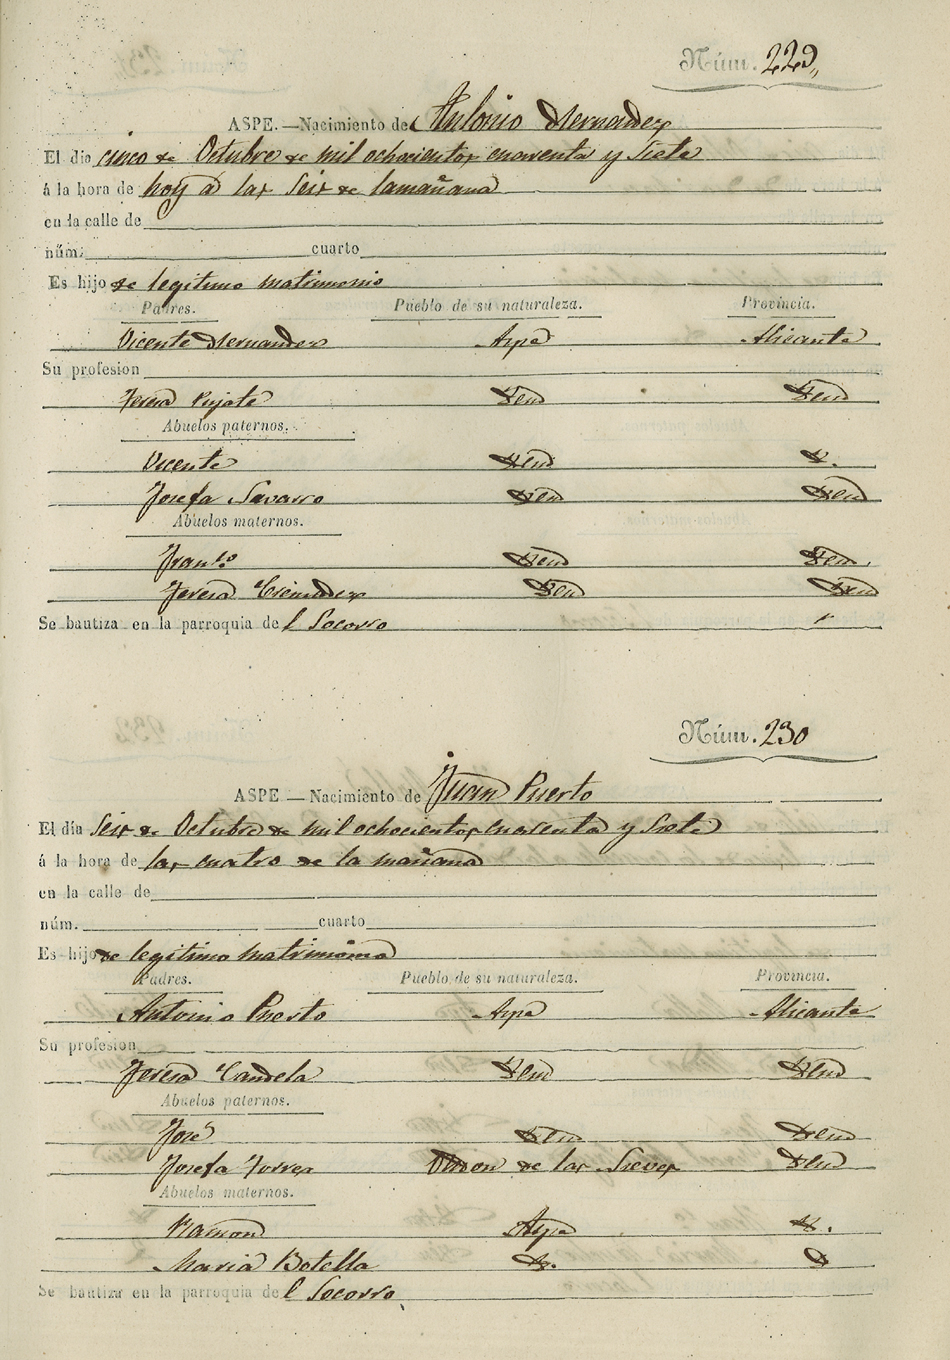 Núm. 229,,
ASPE.—Nacimiento de Antonio Hernandez
El dia cinco de Octubre de mil ochocientos cuarenta y siete
á la hora de hoy á las seis de la mañana
en la calle de
núm. cuarto
Es hijo de legitimo matrimonio
Padres. Pueblo de su naturaleza. Provincia.
Vicente Hernandez Aspe Alicante
Su profesion
Teresa Pujalte Idem Idem
Abuelos paternos.
Vicente Idem Id.
Josefa Navarro Idem Idem
Abuelos maternos.
Franco. Idem Idem.
Teresa Cremades Idem Idem
Se bautiza en la parroquia del Socorro
Núm. 230
ASPE.—Nacimiento de Juan Puerto
El dia seis de Octubre de mil ochocientos cuarenta y siete
á la hora de las cuatro de la mañana
en la calle de
núm. cuarto
Es hijo de legitimo matrimonio
Padres. Pueblo de su naturaleza. Provincia.
Antonio Puerto Aspe Alicante
Su profesion
Teresa Candela Idem Idem
Abuelos paternos.
José Idem Idem
Josefa Torres Ondon de las Nieves Idem
Abuelos maternos.
Ramon Aspe Id.
Maria Botella Id. Id
Se bautiza en la parroquia del Socorro